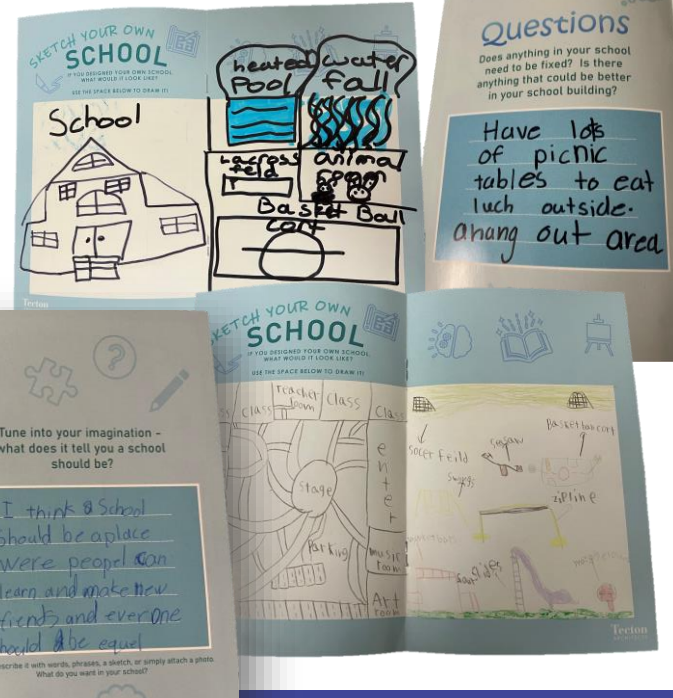 SKETCH YOUR OWN
SCHOOL
IF YOU DESIGNED YOUR OWN SCHOOL,
WHAT WOULD IT LOOK LIKE?
USE THE SPACE BELOW TO DRAW IT!
School
heated
Pool
water
fall
Lacross
feld
animal
room
Basket Ball
cort
Tecton
Questions
Does anything in your school
need to be fixed? Is there
anything that could be better
in your school building?
Have lots
of picnic
tables to eat
luch outside.
ahang out area
Tune into your imagination –
what does it tell you a school
should be?
I think a School
should be aplace
were peopel can
learn and make new
fiends and everone
should be equel
describe it with words, phrases, a sketch, or simply attach a photo.
What do you want in your school?
SKETCH YOUR OWN
SCHOOL
IF YOU DESIGNED YOUR OWN SCHOOL,
WHAT WOULD IT LOOK LIKE?
USE THE SPACE BELOW TO DRAW IT!
Class
teacher
room
Class
Class
Stage
enter
Parking
music
room
Art
room
socer feild
Basket ball cort
swings
zipline
slides
Tecton